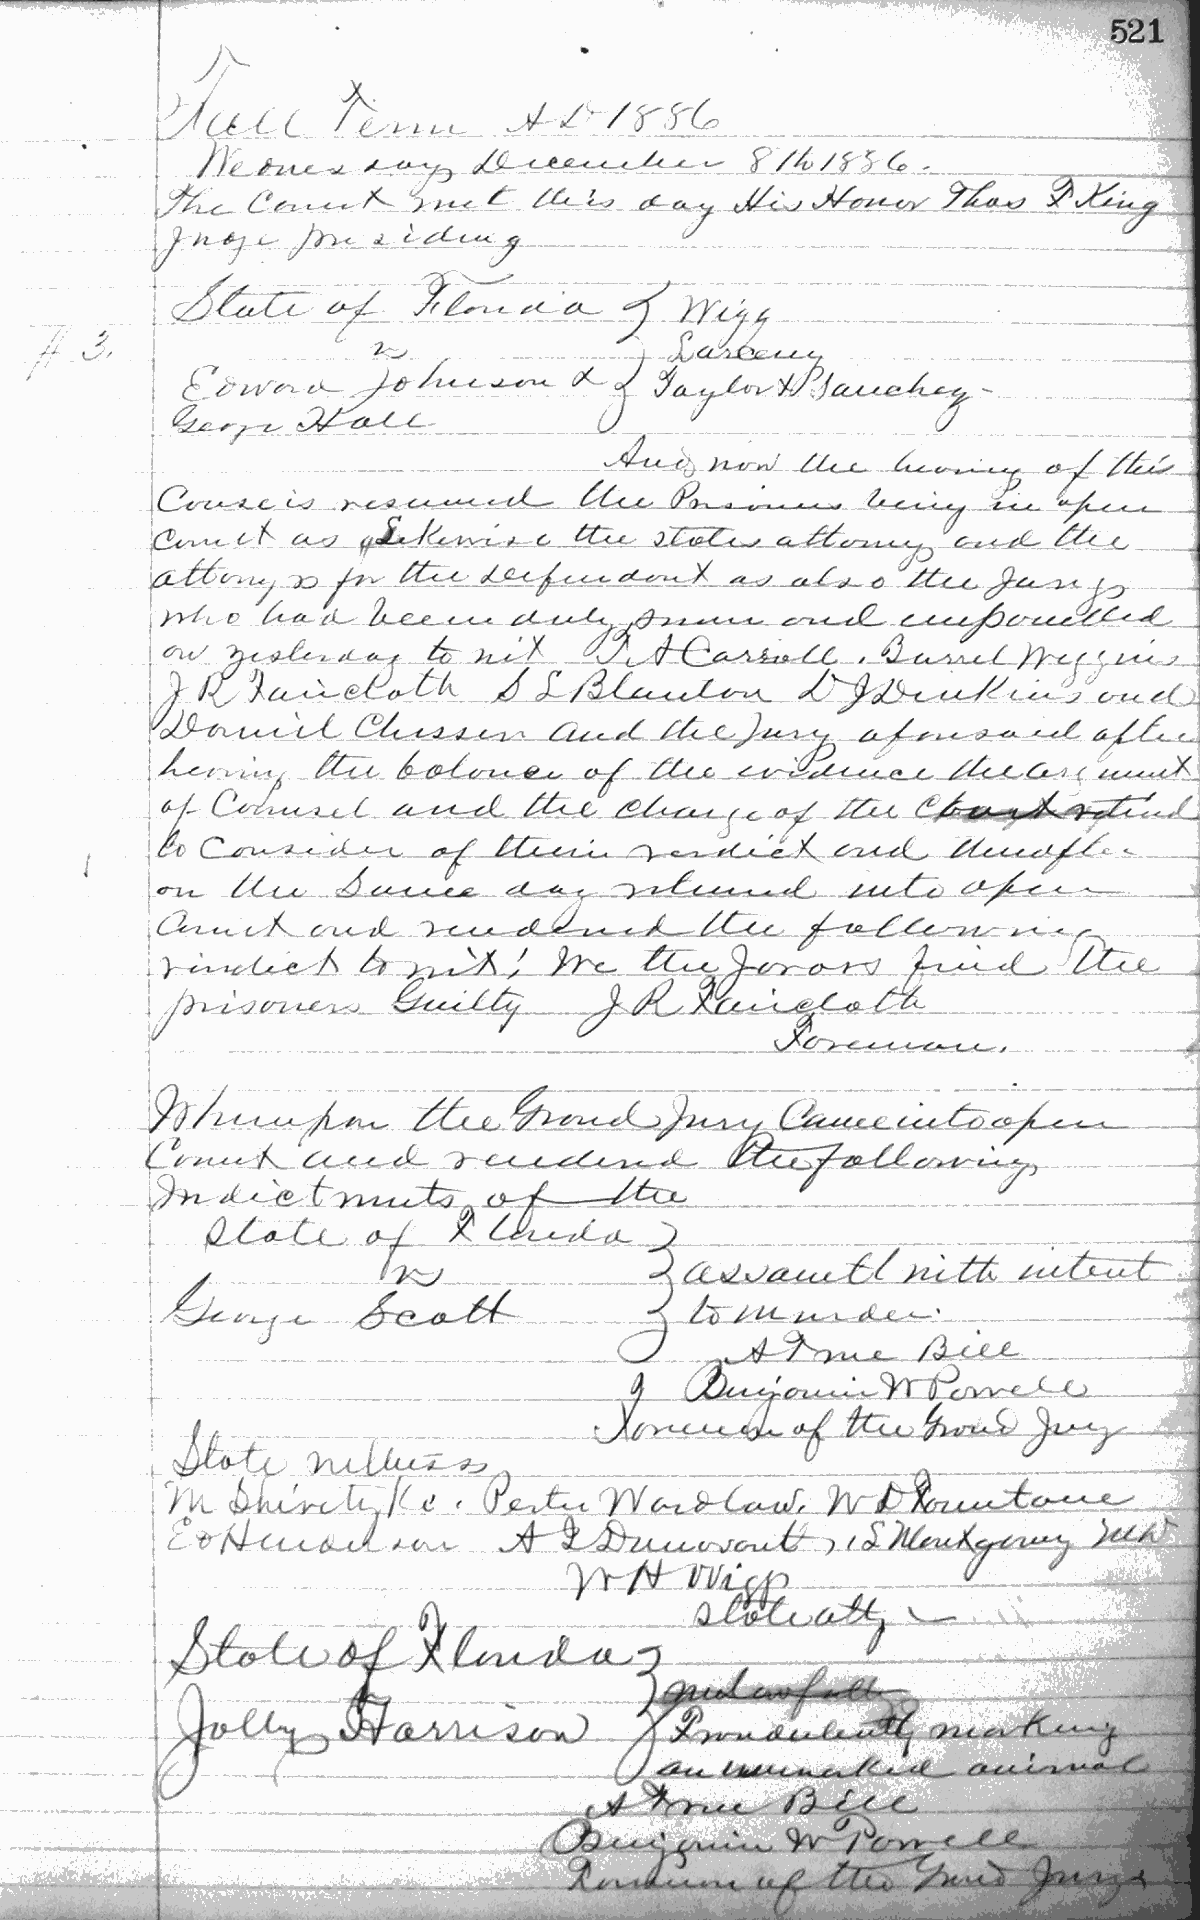 521
Fall Term A D 1886
Wednesday December 8th 1886.
The Court met this day His Honor Thos F King
Judge presiding
State of Florida } Wigg
# 3. vs } Larceny
Edward Johnson & } Taylor & Sanchez
George Hall
And now the hearing of this
Cause is resumed the Prisoners being in open
Court as Likewise the states attorney and the
attorneys for the defendant as also the Jury
who had been duly sworn and empanelled
on yesterday to wit T A Carroll, Burrel Wiggins
J R Faircloth S L Blanton D J Dinkins and
Daniel Chesser And the Jury aforesaid after
hearing the balance of the evidence the argument
of Counsel and the charge of the Court retired
to Consider of their verdict and thereafter
on the Same day returned into open
Court and rendered the following
verdict to wit; We the Jurors find the
prisoners Guilty J R Faircloth
Foreman.
Whereupon the Grand Jury Came into open
Court and rendered the following
Indictments of the
State of Florida }
vs } assault with intent
George Scott } to murder.
A True Bill
Benjamin W Powell
Foreman of the Grand Jury
State witness
M Shively Perter Wardlaw, W D Fountane
Ed Henderson A I Dunovant, S Montgomery M W
W H Wigg
state atty
State of Florida }
vs } unlawfully
Jolly Harrison } Fraudulently marking
an unmarked animal
A True Bill
Benjamin W Powell
Foreman of the Grand Jury